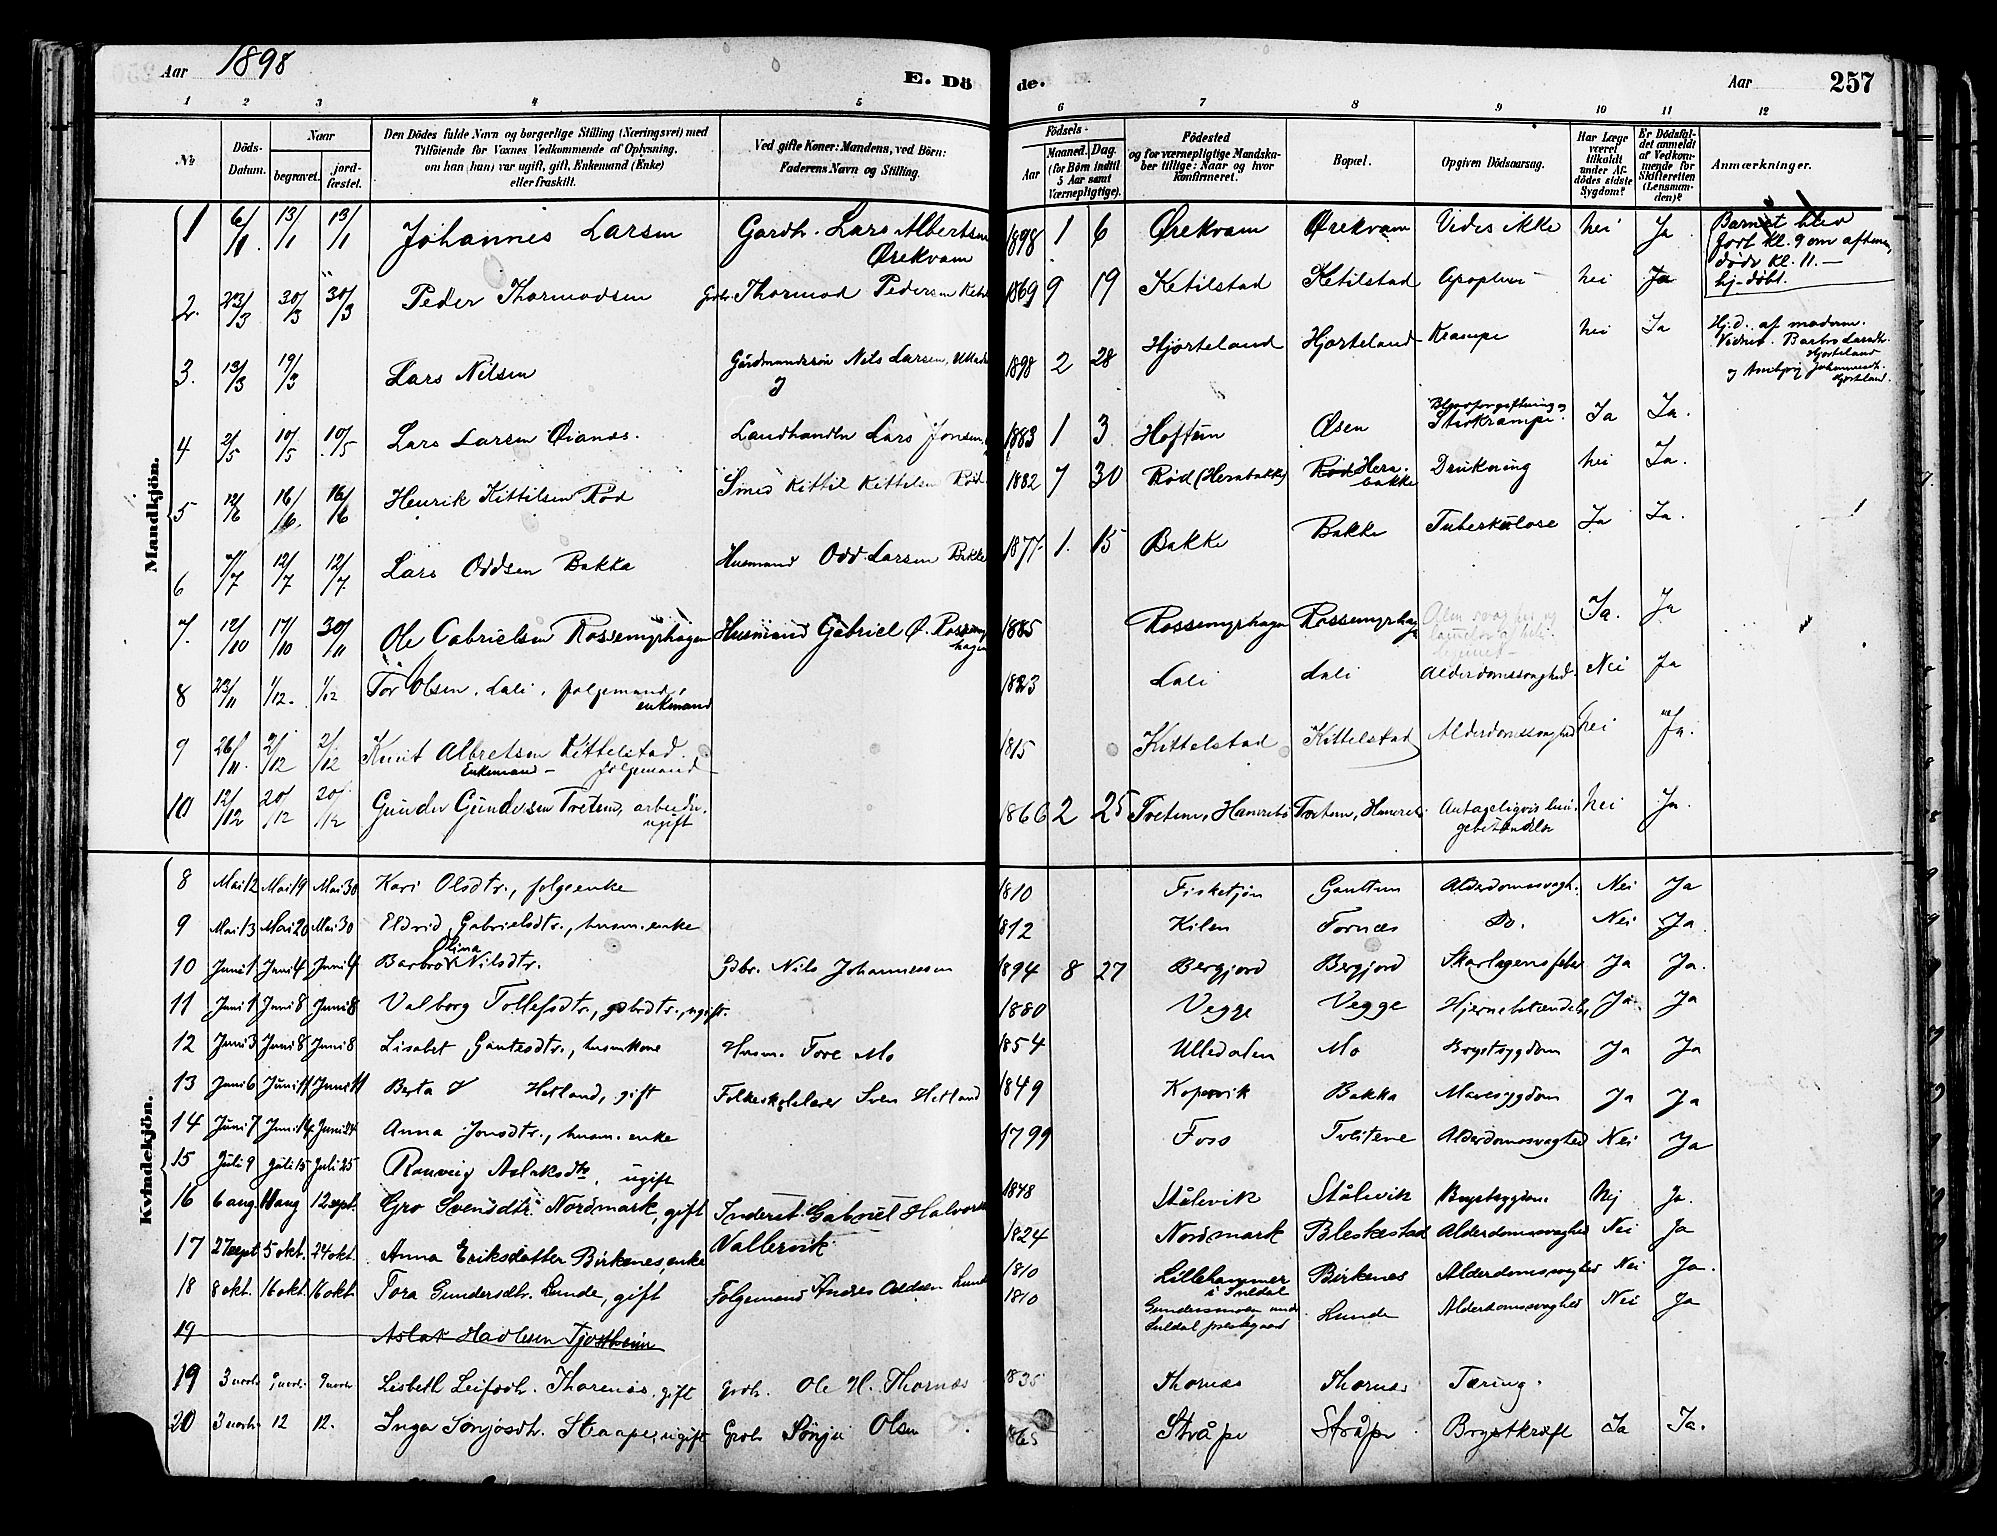 Aar 1898 E. Dö de. Aar 257
1 2 3 4 5 6 7 8 9 10 11 12
No
Döds-Datum.
Naar
begravet. jordfæstet.
Den Dödes fulde Navn og borgerlige Stilling (Næringsvei) med
Tilföiende for Voxnes Vedkommende af Oplysning,
om han (hun) var ugift, gift, Enkemand (Enke)
eller fraskilt.
Ved gifte Koner: Mandens, ved Börn:
Faderens Navn og Stilling.
Födsels-
Aar
Maaned. Dag.
(for Börn indtil
5 Aar samt
Værnepligtige).
Födested
og for værnepligtige Mandska-
ber tillige: Naar og hvor
konfirmeret.
Bopæl.
Opgiven Dödsaarsag.
Har Læge
været
tilkaldt
under Af-
dödes sidste
Sygdom?
Er Dödsfal-
det anmeldt
af Vedkom-
mende for
Skifteretten
(Lensman-
den)?
Anmærkninger.
Mandkjön.
1 6/1 13/1 13/1 Johannes Larsen Gardb. Lars Albertsen Ørekvam 1898 1 6 Ørekvam Ørekvam Vides ikke nei Ja Barnet blev født kl. 9 om aftenen, døde kl. 11. – hj-døbt.
2. 23/3 30/3 30/3 Peder Thormodsen Gbr. Thormod Pedersen 1869 9 19 Ketilstad Ketilstad Apoplexi nei Ja
3. 13/3 19/3 Lars Nilsen Gårdmandssøn Nils Larsen, 1898 2 28 Hjorteland Hjorteland Krampe nei Ja Hj.d. af moderen. Vidner. Barbro Larsdt. Hjorteland og Johannesdt. Hjorteland.
4 2/5 10/5 10/5 Lars Larsen Øianes. Landhandler Lars Jonsen 1883 1 3 Hoftun Øsen Blodforgiftning og Stivkrampe Ja Ja.
5 12/6 16/6. 16/6 Henrik Kittilsen Rød Smed Kittil Kittilsen Rød 1882 7 30 Rød (Herabakke) Rød Herabakke Drukning nei Ja.
6 7/7 12/7 12/7. Lars Oddsen Bakka Husmand Odd Larsen Bakke 1877. 1. 15 Bakke Bakke Tuberkulose Ja Ja.
7. 12/10 17/10 30/11 Ole Gabrielsen Rossemyrhagen Husmand Gabriel Ø. Rossemyrhagen 1885 Rossemyrhagen Rossemyrhagen Alm svaghed og Ja. Ja
8 23/11 1/12. 1/12 Tor Olsen, Lali, folgemand, enkemand 1823 Lali Lali Alderdomssvaghed Nei Ja
9 26/11. 2/12 2/12 Knut Albretsen Kittelstad. Enkemand – folgemand – 1815 Kittelstad Kittelstad Alderdomssvaghed nei Ja.
10 12/12 20/12 20/12 Gunder Gundersen Tretem, arbeider, ugift 1866 2 25 Tretem, Hamrebø Tretem, Antageligvis lungebetændelse nei Ja.
Kvindekjön.
8 Mai 12 Mai 19 Mai 30 Kari Olsdtr., folgeenke 1810 Fisketjøn Gauttun Alderdomssvagh. Nei Ja
9 Mai 13 Mai 20 Mai 30 Eldrid Gabrielsdtr., husm. enke 1812 Kilen Fornæs Do. Nei Ja
10 Juni 1 Juni 4 Juni 4 Barbro Olina Nilsdtr. Gdbr. Nils Johannessen 1894 8 27 Bergjord Bergjord Skarlagensfeber Ja Ja.
11 Juni 1 Juni 8 Juni 8 Valborg Tollefsdtr., gdbrdtr., ugift. 1880 Vegge Vegge Hjernebetændelse Ja. Ja
12 Juni 3 Juni 8 Juni 8 Lisabet Gautesdtr., husmkone Husm. Tore Mo 1854 Ulledalen Mo Brystsygdom Ja Ja
13 Juni 6 Juni 11 Juni 11 Berta Hetland, gift Folkeskolelærer Sven Hetland 1849 Kopervik Bakka Mavesygdom Ja Ja
14 Juni 7 Juni 14 Juni 24 Anna Jonsdtr., husm. enke 1799 Foss Tveitene Alderdomssvaghed Nei Ja
15 Juli 9 Juli 15 Juli 25 Ranveig Aslaksdtr., ugift 1848 Stålevik Stålevik Brystsygdom. Nej Ja.
16 6 aug. 11 aug 12 sept. Gro Svensdtr. Nordmark, gift Inderst. Gabriel Halvorsen Vallervik 1824 Nordmark Bleskestad Alderdomssvaghed Nei Ja
17 27 sept 5 okt. 24 okt. Anna Eriksdatter Birkenes, enke 1810 Lillehammer i Suldal Birkenes Alderdomssvaghed Nei Ja.
18 8 okt. 16 okt. 16 okt. Tora Gundersdtr. Lunde, gift Folgemand Andres Oddsen Lunde 1810 Gundersmoen under Suldal prestegaard Lunde Alderdomssvaghed Nei Ja
19 Aslak Hadlesen Tjostheim
19 3 novbr 9 novbr. 9 novbr Lisbeth Leifsdtr. Thornæs, gift Grdbr. Ole H. Thornæs 1835 Thornæs Thornæs Tæring.
20 3 novbr 12 12. Inga Sønjosdtr. Straape, ugift Grdbr Sønju Olsen 1865 Stråpe Stråpe Brystkræft Ja Ja.